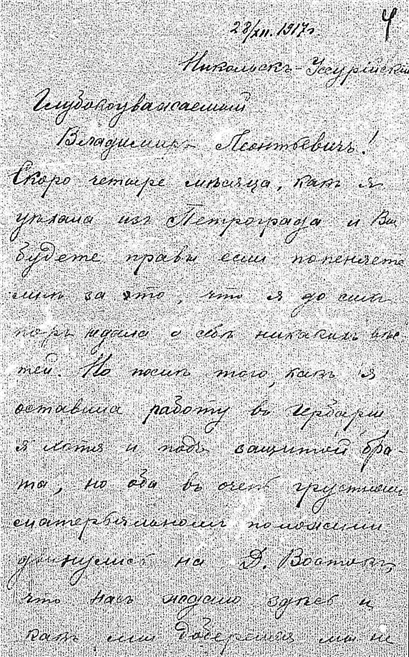 4
28/XII. 1917г.
Никольскъ-Уссурійский
Глубокоуважаемый
Владимиръ Леонтьевичъ!
Скоро четыре мѣсяца, какъ я
уѣхала изъ Петрограда и Вы
будете правы если попеняете
мнѣ за это, что я до сихъ
поръ не дала о себѣ никакихъ вѣс-
тей. Но послѣ того, какъ я
оставила работу въ Гербаріи
я хотя и подъ защитой бра-
та, но оба въ очень грустномъ
матерьяльномъ положеніи
двинулись на Д. Востокъ,
что насъ ждало здѣсь и
какъ мы доберемся мы не